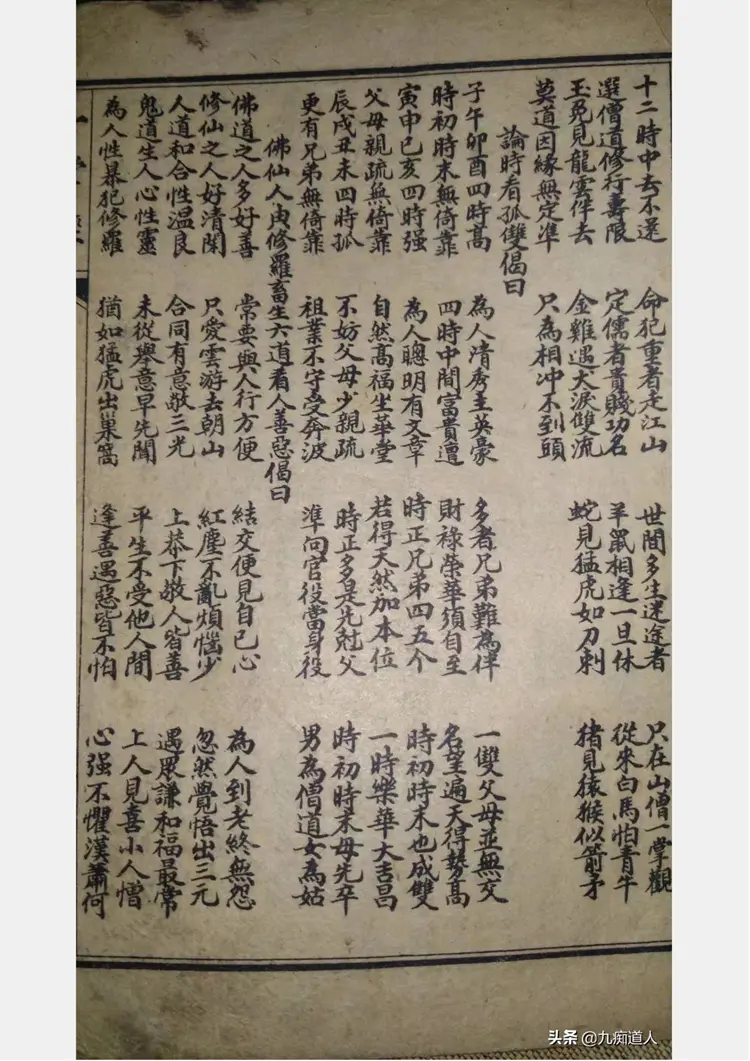 十二時中去不還 命犯重者走江山 世間多生迷途者 只在山僧一掌觀
選僧道修行壽限 定儒者貴賤功名 羊鼠相逢一旦休 從來白馬怕青牛
玉兔見龍雲伴去 金雞遇犬淚雙流 蛇見猛虎如刀刺 猪見猿猴似箭矛
莫道因緣無定準 只為相冲不到頭
論時看孤雙偈曰
子午卯酉四時高 為人清秀主英豪 多者兄弟難為伴 一雙父母並無交
時初時末無倚靠 四時中間富貴遭 財祿榮華須自至 名望遍天得勢高
寅申巳亥四時强 為人聰明有文章 時正兄弟四五个 時初時末也成雙
父母親疏無倚靠 自然高福坐華堂 若得天然加本位 一時樂華大吉昌
辰戌丑未四時孤 不妨父母少親疏 時正多是先尅父 時初時末母先卒
更有兄弟無倚靠 祖業不守受奔波 準向官役當身役 男為僧道女為姑
佛仙人鬼修羅畜生六道看人善惡偈曰
佛道之人多好善 常要與人行方便 結交便見自己心 為人到老終無怨
修仙之人好清閑 只愛雲游去朝山 紅塵不亂煩惱少 忽然覺悟出三元
人道和合性溫良 合同有意敬三光 上恭下敬人皆善 遇眾謙和福最常
鬼道生人心性靈 未從舉意早先聞 平生不受他人間 上人見喜小人憎
為人性暴犯修羅 猶如猛虎出巢窩 逢善遇惡皆不怕 心强不懼漢蕭何
头条 @九痴道人